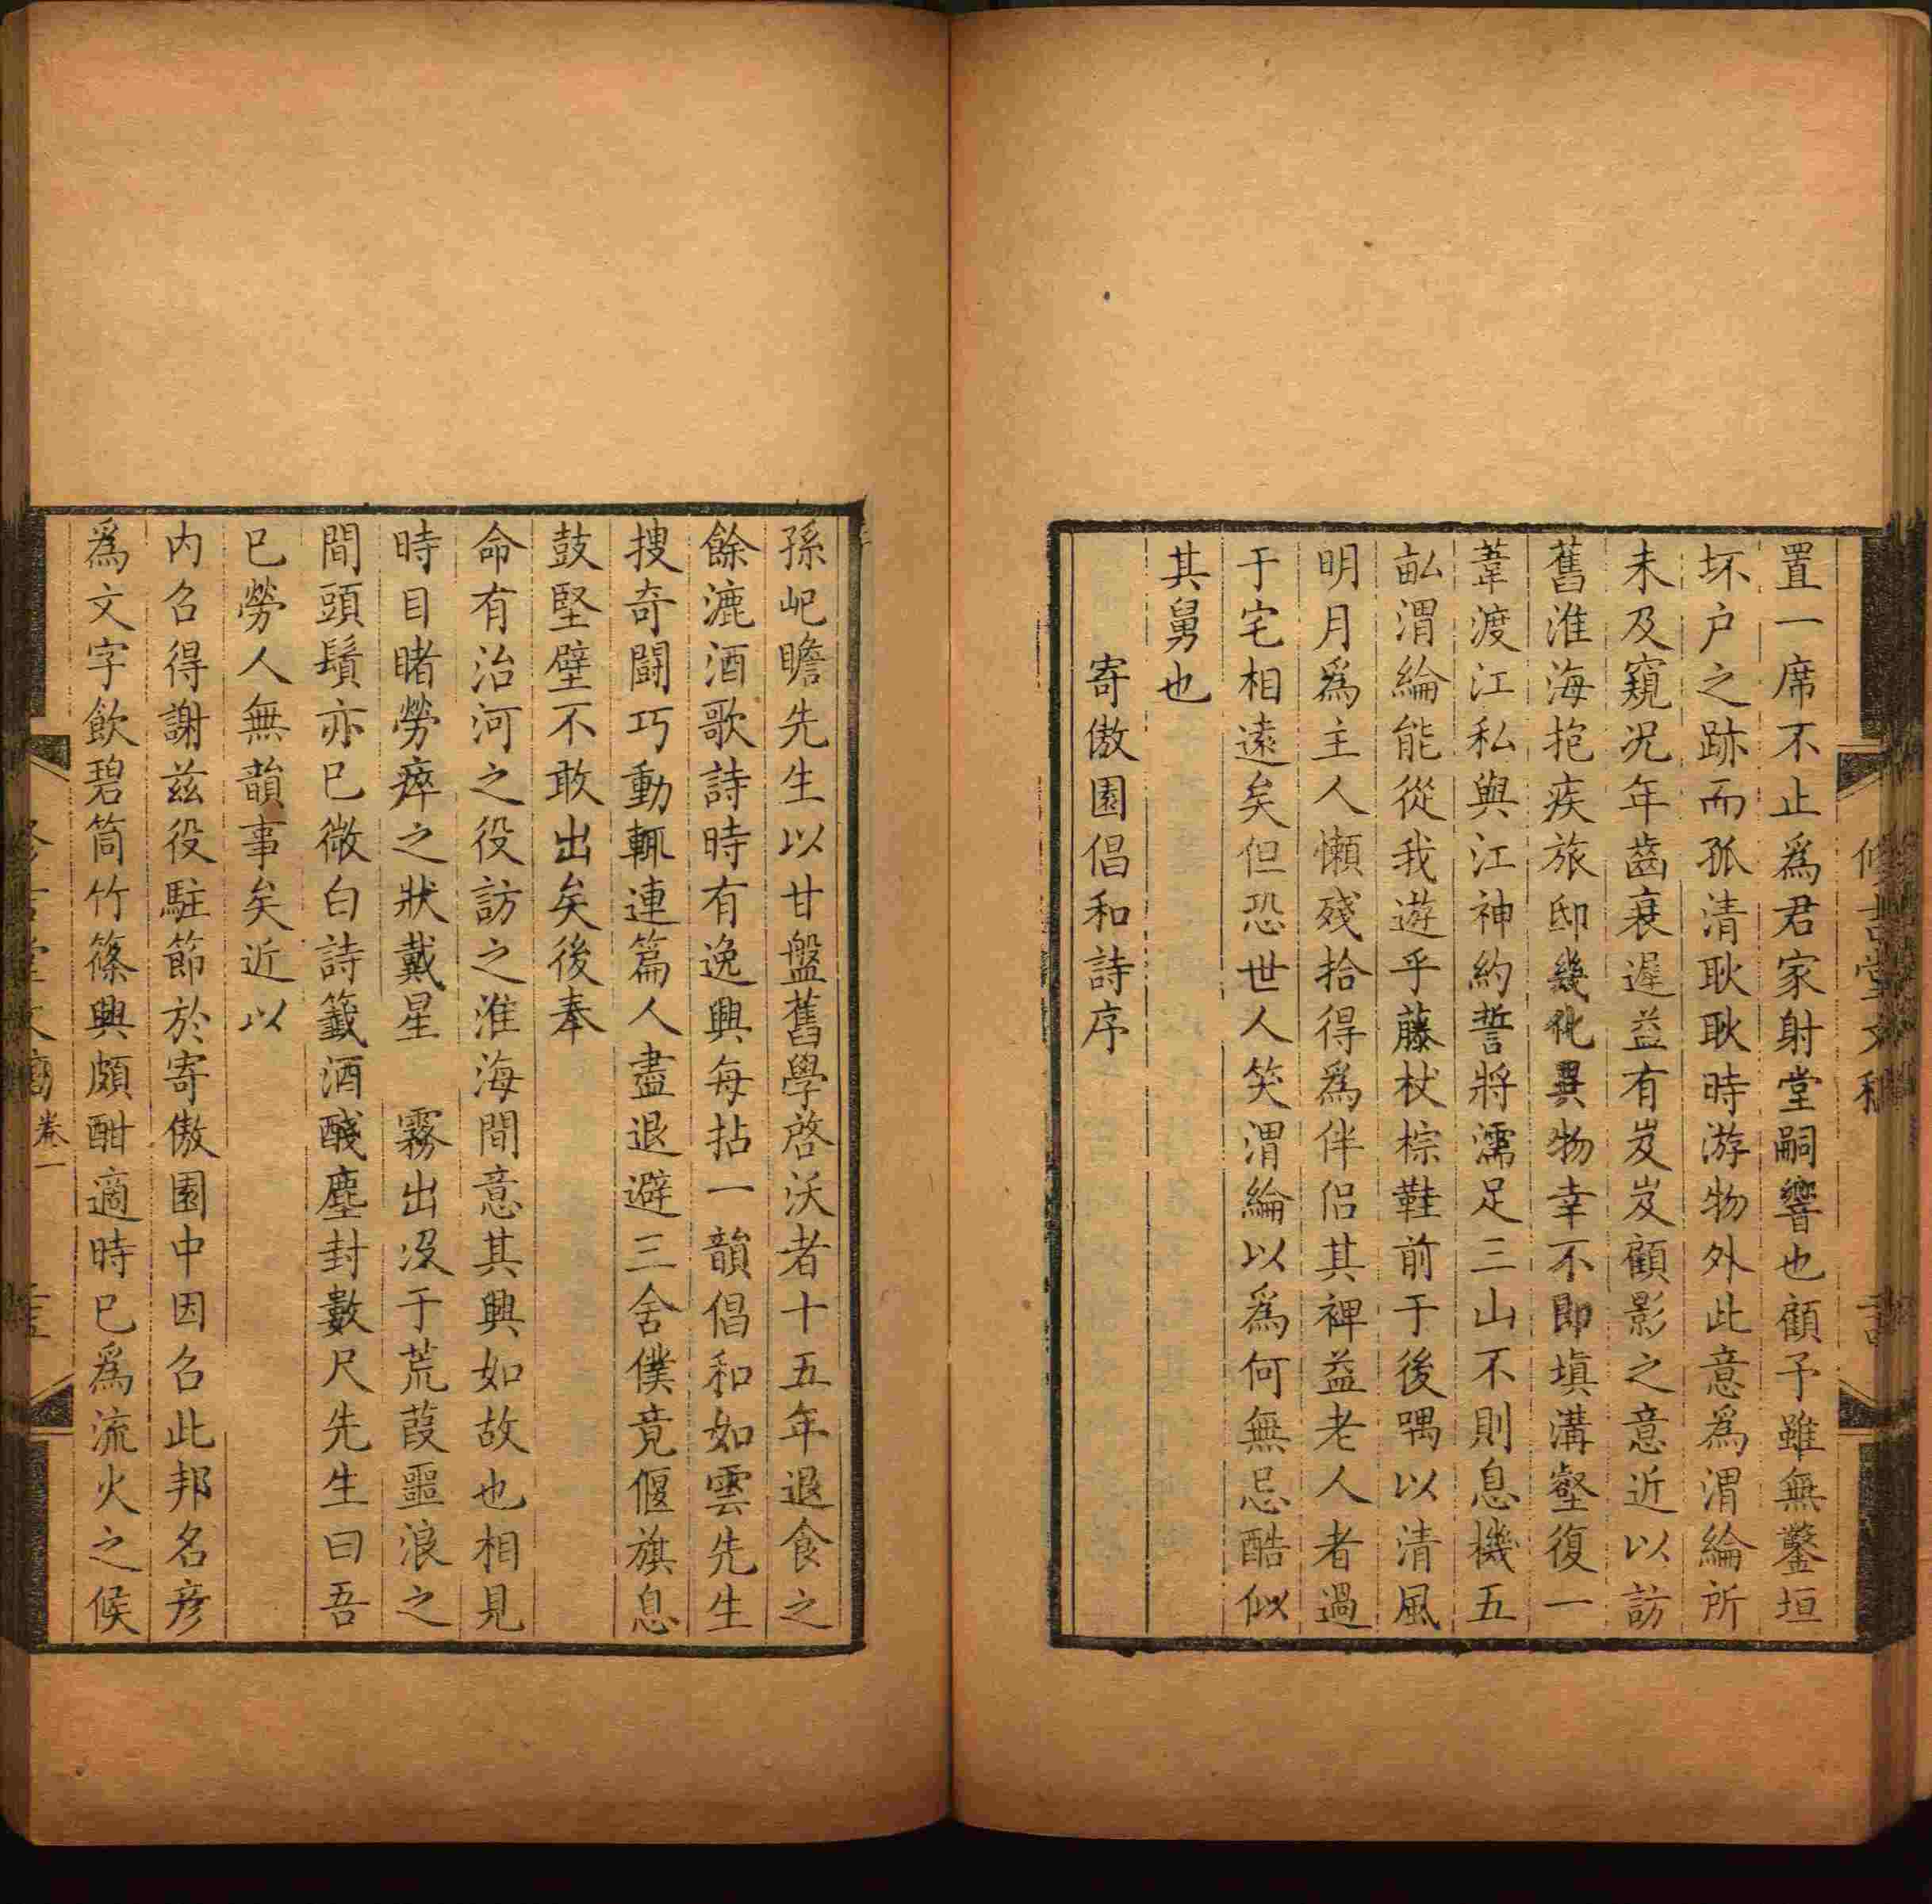 置一席不止爲君家射堂嗣響也顧予雖無鑿垣
坏户之跡而孤清耿耿時游物外此意爲渭綸所
未及窺况年齒衰遲益有岌岌顧影之意近以訪
舊淮海抱疾旅邸幾化異物幸不即填溝壑復一
葦渡江私與江神約誓將濡足三山不則息機五
畝渭綸能從我遊乎藤杖棕鞋前于後喁以清風
明月爲主人懶殘拾得爲伴侣其裨益老人者過
于宅相遠矣但恐世人笑渭綸以爲何無忌酷似
其舅也
寄傲園倡和詩序
孫屺瞻先生以甘盤舊學啓沃者十五年退食之
餘漉酒歌詩時有逸興每拈一韻倡和如雲先生
搜奇鬪巧動輒連篇人盡退避三舍僕竟偃旗息
鼓堅壁不敢出矣後奉
命有治河之役訪之淮海間意其興如故也相見
時目睹勞瘁之狀戴星 霧出没于荒葭噩浪之
間頭鬚亦已微白詩籤酒醆塵封數尺先生曰吾
已勞人無韻事矣近以
内召得謝兹役駐節於寄傲園中因召此邦名彦
爲文字飲碧筒竹篠興頗酣適時已爲流火之候
卷一